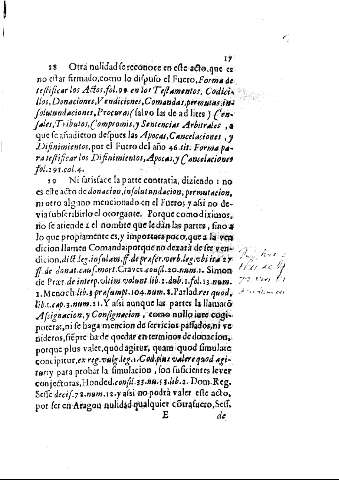 17
28 Otra nulidad se reconoce en este acto, que es
no estar firmado, como lo dispuso el Fuero, Forma de
testificar los Actos. fol. 99. en los Testamentos, Codici-
llos, Donaciones, Vendiciones, Comandas, permutas, in-
solutundaciones, Procuras (salvo las de ad lites) Cen-
sales, Tributos, Compromis, y Sentencias Arbitrales, a
que se añadieron despues las Apocas, Cancelaciones, y
Difinimientos, por el Fuero del año 46. tit. Forma pa-
ra testificar los Difinimientos, Apocas, y Cancelaciones
fol. 191. col. 4.
29 Ni satisface la parte contraria, diziendo: no
es este acto de donacion, insolutundacion, permutacion,
ni otro alguno mencionado en el Fueros y assi no de-
via subscribirlo el otorgante. Porque como diximos,
no se atiende al nombre que le dàn las partes, sino a
lo que propiamente es, y importara poco, que a la ven
dicion llamen Comanda; porque no dexarà de ser ven-
dicion, dict. leg. insulam. ff. de præscr. verb. leg. ubi ita 27
ff. de donat. caus. mort. Craves. consil. 20. num. 1. Simon
de Præt. de interp. ultim. volunt. lib. 2. dub. 1. fol. 13. num.
1. Menoch. lib. 3. præsump. 104. num. 8. Parlad. res quod.
lib. 1. cap. 3. num. 21. Y assi aunque las partes la llamarò
Assignacion, y Consignacion, como nullo iure cogi-
poterat, ni se haga mencion de servicios passados, ni ve
nideros, siẽpre ha de quedar en terminos de donacion,
porque plus valet, quod agitur, quam quod simulatè
concipitur, ex reg. vulg. leg. 1. Cod. plus valere quod agi-
tur; y para probar la simulacion, son suficientes lever
conjecturas, Honded. consil. 33. num. 13. lib. 2. Dom. Reg.
Sesse decis. 72. num. 12. y assi no podrà valer este acto,
por ser en Aragon nulidad qualquier cõtrafuero, Sess.
E de